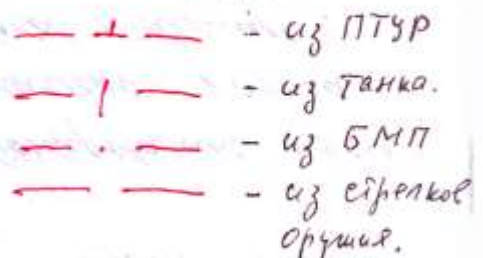 - из ПТУР
- из танка.
- из БМП
- из стрелков
оружия.